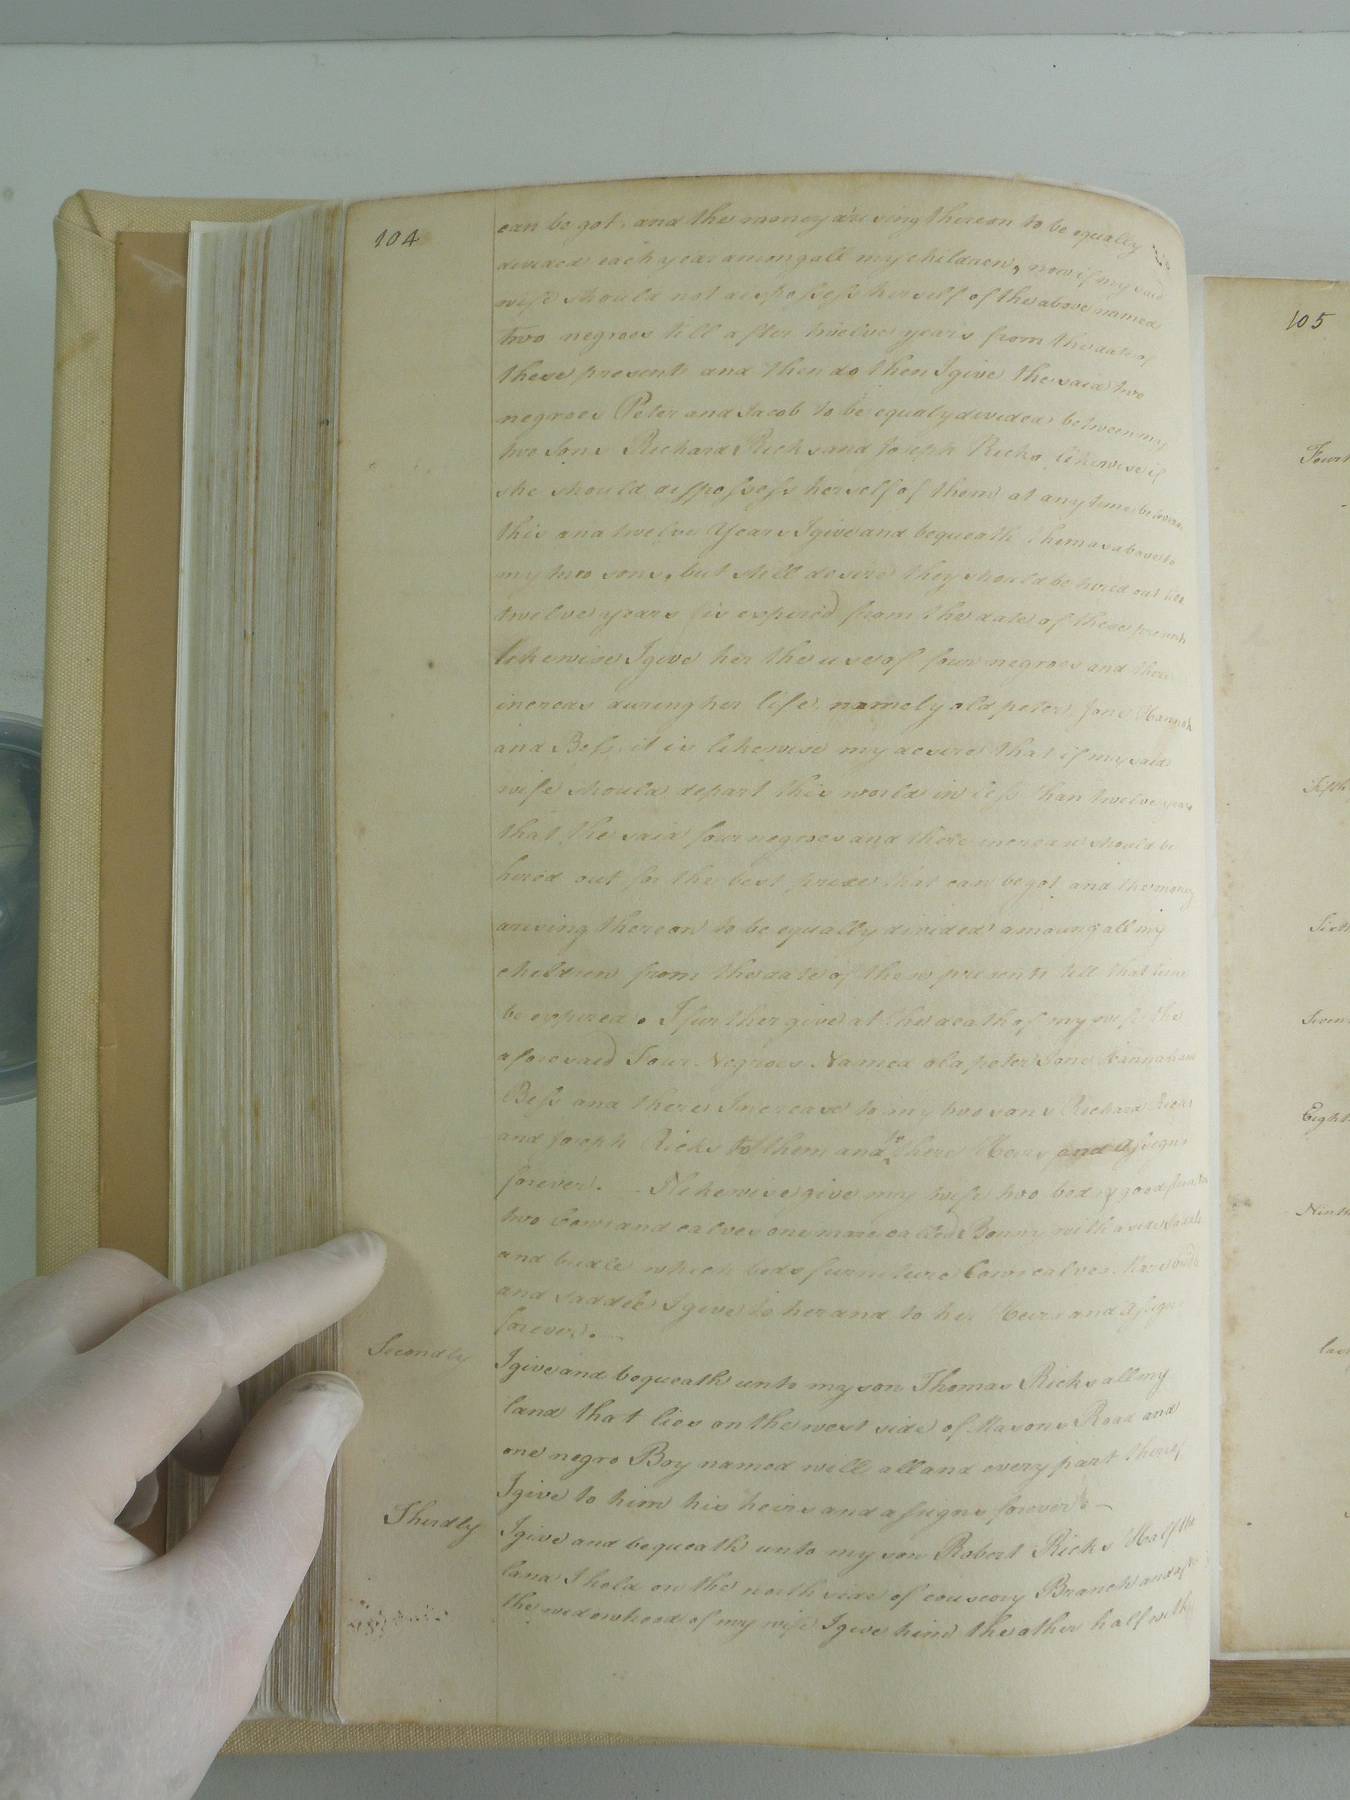 104
can be got, and the money arising thereon to be equally
divided each year amongall my children, now if my said
wife should not dispossess herself of the above named
two negroes till after twelve years from the date of
these presents and then do then I give the said two
negroes Peter and Jacob to be equaly divided between my
two sons Richard Ricks and Joseph Ricks likewise if
she should disspossess herself of them at any time between
this and twelve Years I give and bequeath them as above to
my two sons, but still desire they should be hired out till
twelve years is expired from the date of these presents
likewise I give her the use of four negroes and there
increas during her life namely old peter Jone Hannah
and Bess it is likewise my desire that if my said
wife should depart this world in less than twelve years
that the said four negroes and there increase should be
hired out for the best price that can be got and the money
arising thereon to be equally divided amoung all my
children from the date of these presents till that time
be expired. I further give at the death of my wife the
aforesaid Four Negroes Named old peter Jone Hannah and
Bess and there Increase to my two sons Richard Ricks
and Joseph Ricks to them and to there Heirs and Assigns
forever. I likewise give my wife two beds & good
two Cows and calves one mare called Bonny with a side saddle
and bridle which beds furniture Cows calves Mare bridle
and saddle I give to her and to her Heirs and Assigns
forever.
Secondly
I give and bequeath unto my son Thomas Ricks all my
land that lies on the west side of Masons Road and
one negro Boy named will all and every part thereof
I give to him his heirs and assigns forever
Therdly
I give and bequeath unto my son Robert Ricks Half the
land I hold on the north side of Branch and after
the widowhood of my wife I give him the other half with
105
Sixth
Eight
Ninth